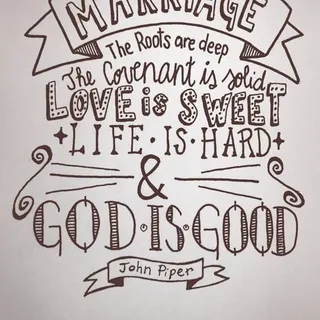 MARRIAGE
The Roots are deep
The Covenant is solid
LOVE is SWEET
LIFE · IS · HARD
&
GOD · IS · GOOD
John Piper